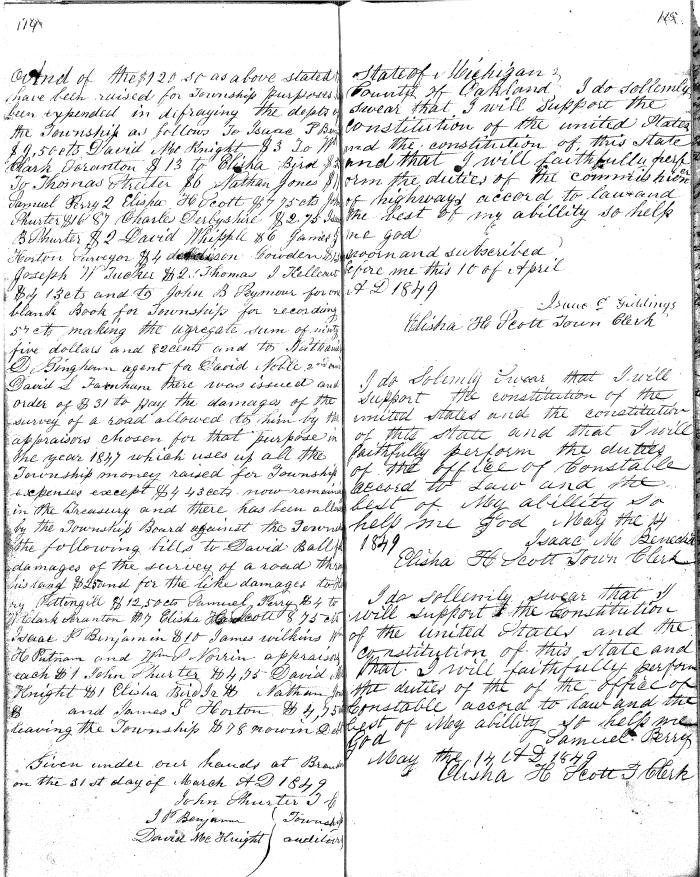 114
And of the $120 50 as above stated
have been raised for Township purposes
been expended in defraying the depts of
the Township as follows To Isaac P Ben
$9,50cts David McKnight $3 To Wm
Clark Stranton $13 to Elisha Bird $
To Thomas $6 Nathan Jones $1
Samuel Perry 2 Elisha H Scott $7 75cts John
Thurter $16 87 Charles Derbyshire $2.75 Isaac
B Thurter $2 David Whipple $6 James
Horton Surveyor $4 Cowden
Joseph W Tucker $2. Thomas J
$4 13cts and to John B Seymour for one
blank Book for Township for recording
57cts making the agregate sum of ninty
five dollars and 82cents and to Nathanie
D Bingham agent for David Noble 2nd and
David L Farnham there was issued and
order of $31 to pay the damages of the
survey of a road allowed to him by the
appraisors chosen for that purpose in
the year 1847 which uses up all the
Township money raised for Township
expenses except $4 43cts now remains
in the Treasury and there has been allow
by the Township Board against the Towns
the following bills to David Ball for
damages of the survey of a road thro
his land $25 and for the like damages to
ry Pettingill $12,50cts Samuel Perry $4 to
W Clark Stranton $7 Elisha H Scott $8 75cts
Isaac P Benjamin $10 James wilkins Wm
H Putnam and Wm P Norrin appraisors
each $1 John Thurter $4,75 David Mc
Knight $1 Elisha Bird Jr $ Nathan Jon
$ and James G Horton $4,75
leaving the Township $78 now in Debt
Given under our hands at Brand
on the 31st day of March AD 1849
John Thurter T C
I P Benjamin Township
David McKnight auditors
115
State of Michigan
County of Oakland I do sollemly
swear that I will support the
constitution of the united States
and the constitution of this State
and that I will faithfully perf
orm the duties of the commishioner
of highways accord to law and
the best of my abillity so help
me god
sworn and subscribed
before me this 10 of April
AD 1849
Isaac C Giddings
Elisha H Scott Town Clerk
I do Solemly Swear that I will
support the constitution of the
united states and the constitution
of this State and that I will
faithfully perform the duties
of the office of Constable
accord to Law and the
best of My abillity so
help me God May the 14
1849 Isaac M Benedict
Elisha H Scott Town Clerk
I do sollemly swear that I
will support the Constitution
of the united Statls and the
constitution of this State and
that I will faithfully perform
the duties of the of the office of
Constable accord to law and the
best of My abillity so help me
God Samuel Perry
May the 14 AD 1849
Elisha H Scott T Clerk